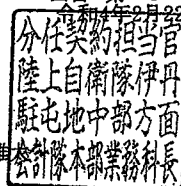 令和4年2月22
分任契約担当官
陸上自衛隊伊丹
駐屯地中部方面
会計隊本部業務科長